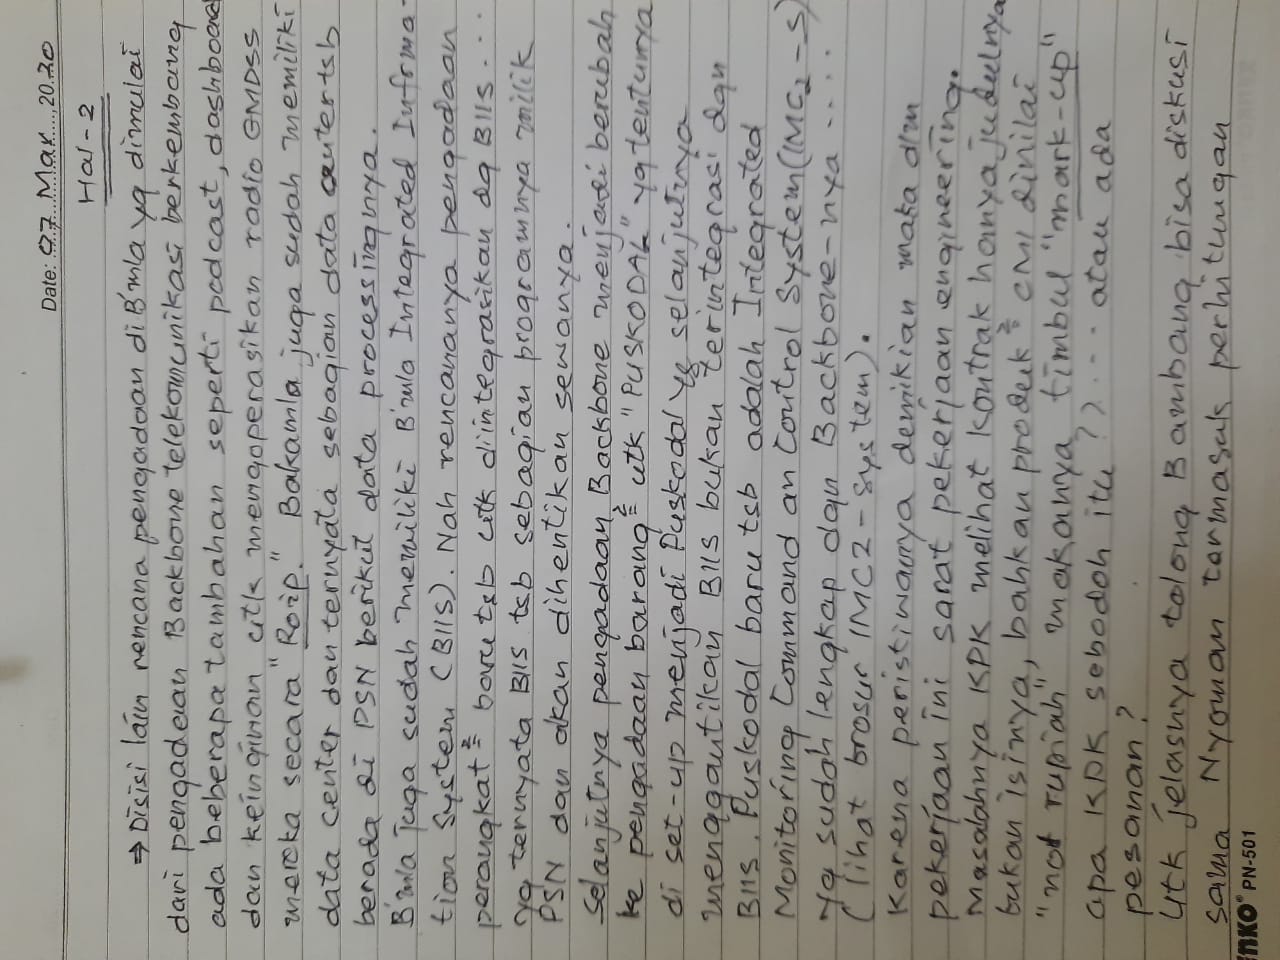 Date: 07 Mar 2020
Hal-2
→ Disisi lain rencana pengadaan di B'mla yg dimulai
dari pengadaan Backbone telekomunikasi berkembang
ada beberapa tambahan seperti podcast, dashboard
dan keinginan utk mengoperasikan radio GMDSS
mereka secara "Roip." Bakamla juga sudah memiliki
data center dan ternyata sebagian data center tsb
berada di PSN berikut data processingnya.
B'mla juga sudah memiliki B'mla Integrated Informa-
tion System (BIIS). Nah rencananya pengadaan
perangkat² baru tsb utk diintegrasikan dg BIIS...
yg ternyata BIIS tsb sebagian programnya milik
PSN dan akan dihentikan sewanya.
Selanjutnya pengadaan Backbone menjadi berubah
ke pengadaan barang² utk "PUSKODAL" yg tentunya
di set-up menjadi Puskodal yg selanjutnya
menggantikan BIIS bukan terintegrasi dgn
BIIS. Puskodal baru tsb adalah Integrated
Monitoring Command an Control System (IMC2-S)
yg sudah lengkap dgn Backbone-nya....
(lihat brosur IMC2-System).
Karena peristiwanya demikian maka dlm
pekerjaan ini sarat pekerjaan engineering.
Masalahnya KPK melihat kontrak hanya judulnya
bukan isinya, bahkan produk² CMI dinilai
"nol rupiah", makanya timbul "mark-up"
apa KDK sebodoh itu??... atau ada
pesanan?
Utk jelasnya tolong B ambang bisa diskusi
sama Nyoman termasuk perhitungan
PN-501